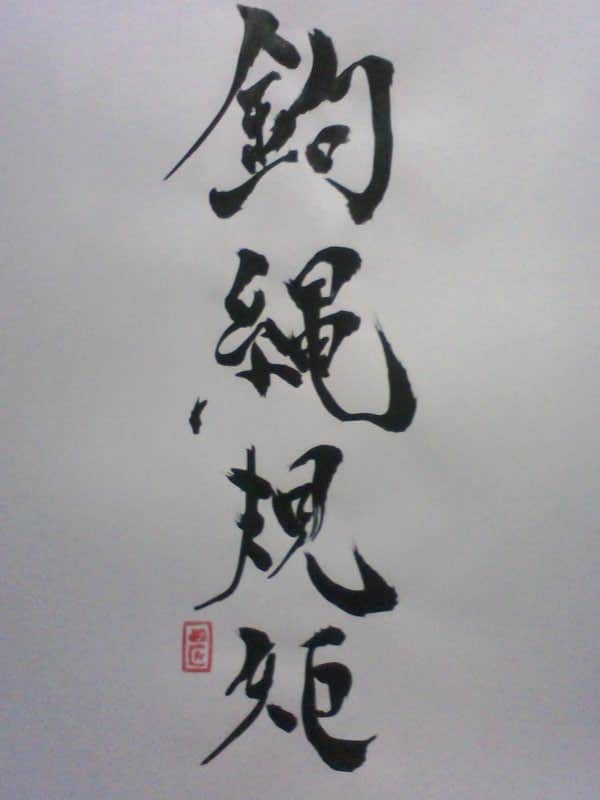 鈎縄規矩